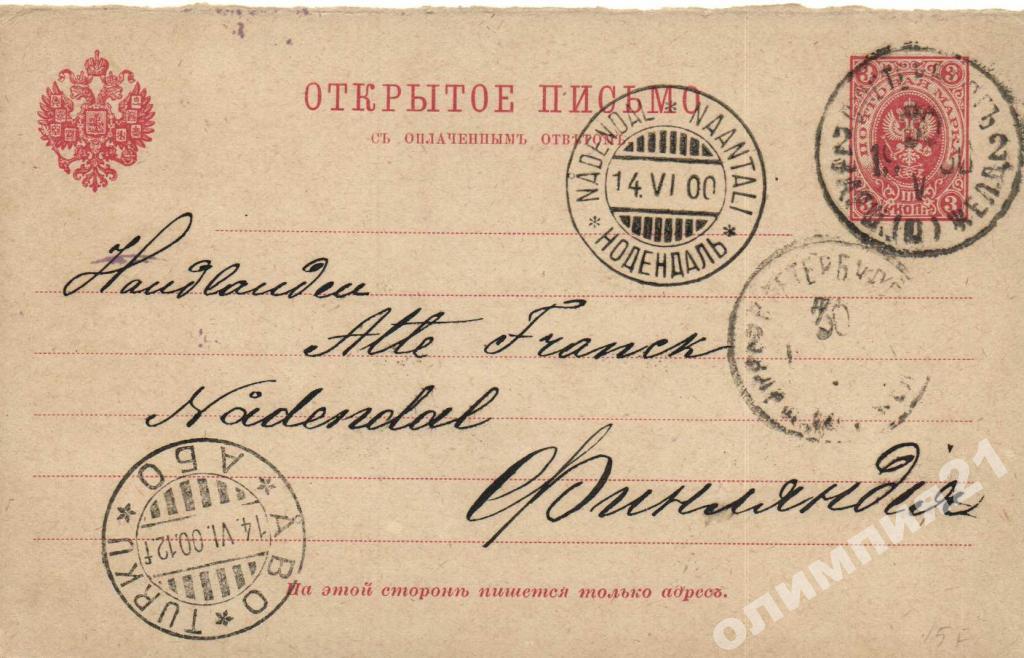 ОТКРЫТОЕ ПИСЬМО
СЪ ОПЛАЧЕННЫМЪ ОТВѢТОМЪ.
3 3
ПОЧТОВАЯ МАРКА
КОП.
3 3
30
V
2
NÅDENDAL * NAANTALI
14. VI 00
* НОДЕНДАЛЬ *
ПЕТЕРБУРГ
30
Handlanden
Atte Franck
Nådendal
Финляндія
* ÅBO * TURKU * АБО
14. VI. 00.12 f
На этой сторонѣ пишется только адресъ.
15 г
олимпия21